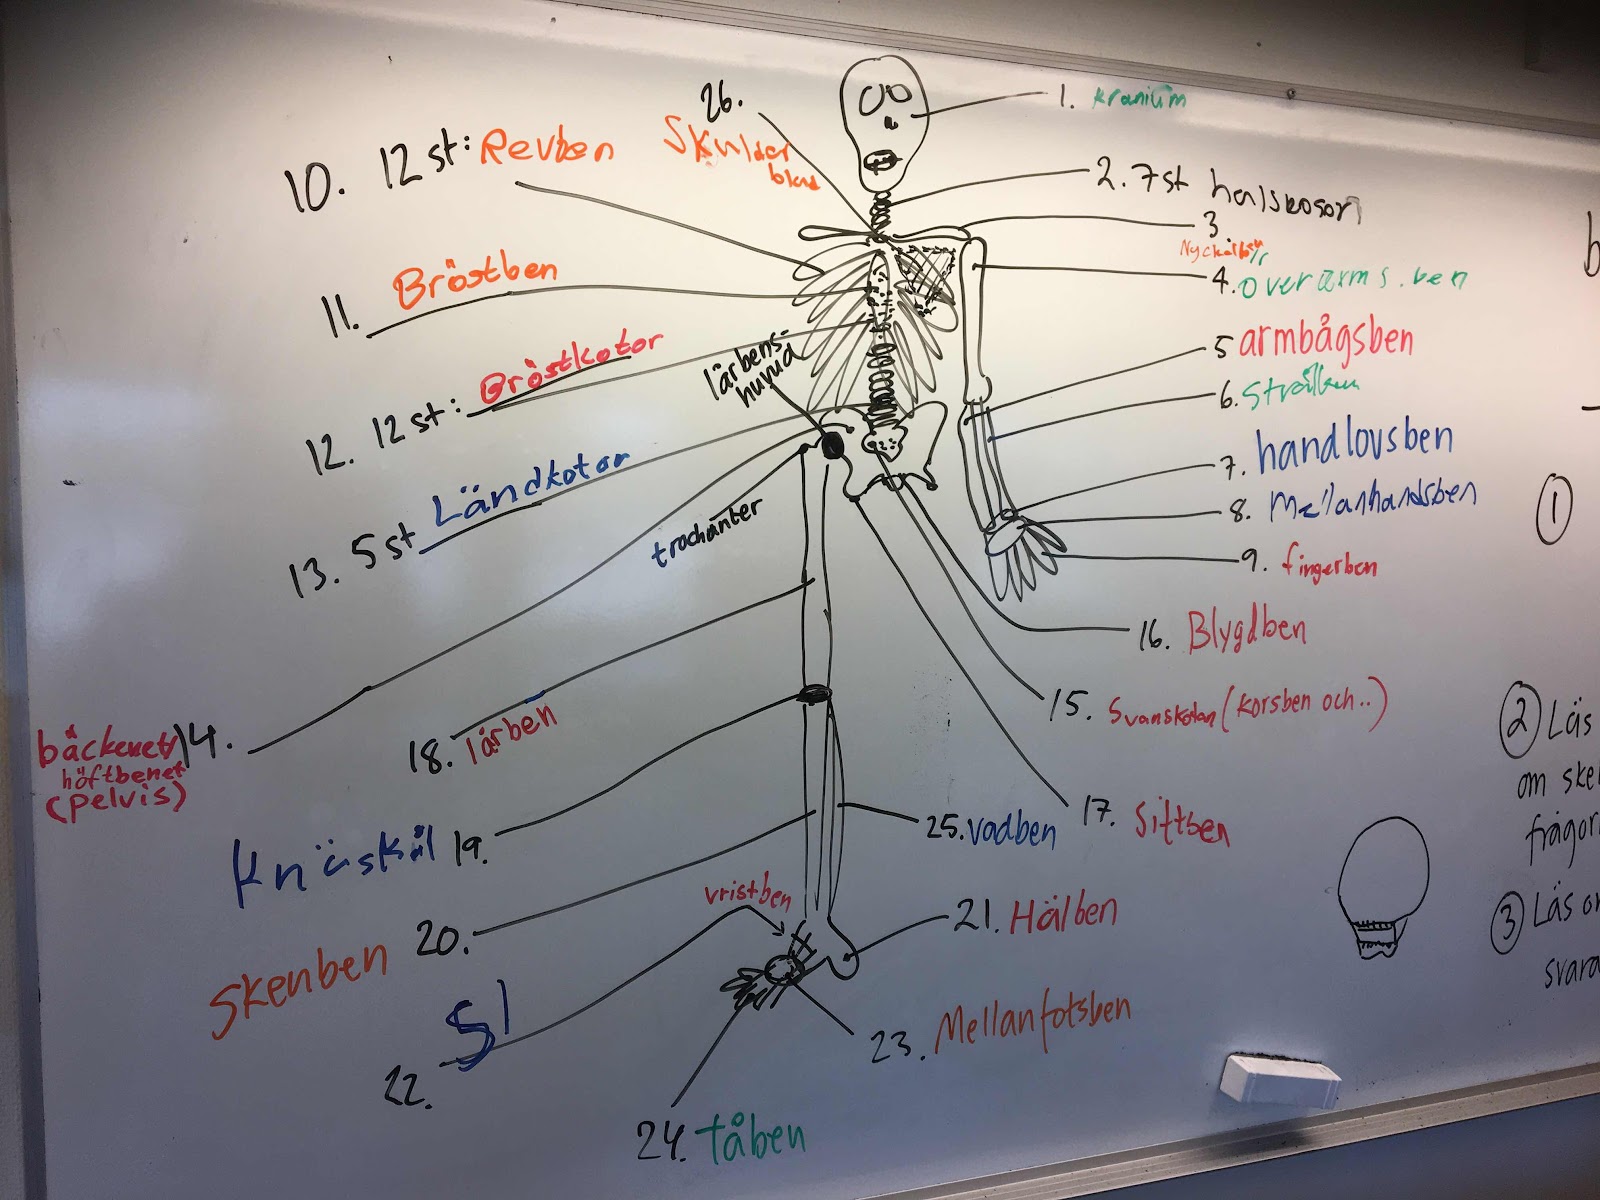 1. Kranium
2. 7st halskotor
3
Nyckelben
4. overarms.ben
5 armbågsben
6. Strålben
7. handlovsben
8. Mellanhandsben
9. fingerben
10. 12 st: Revben
11. Bröstben
12. 12 st: Bröstkotor
13. 5 st Ländkotor
bäckenet 14.
höftbenet
(pelvis)
15. Svanskotan (korsben och..)
16. Blygdben
17. Sittben
18. lårben
Knäskål 19.
Skenben 20.
21. Hälben
22. Sl
vristben
23. Mellanfotsben
24. tåben
25. vadben
26.
Skulder
blad
lårbens-
huvud
trochanter
b
1
2 Läs
om ske
frågor
3 Läs o
svara